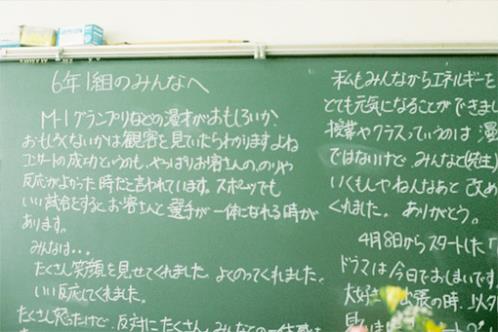 6年1組のみんなへ
M-1グランプリなどの漫才がおもしろいか、
おもしろくないかは観客を見ていたらわかりますよね
コンサートの成功というのも、やっぱりお客さんの、のりや
反応がよかった時だと言われています。スポーツでも
いい試合をするとお客さんと選手が一体になれる時が
あります。
みんなは・・・
たくさん笑顔を見せてくれました。よくのってくれました。
いい反応してくれました。
たくさん笑ったけど、反対にたくさん
私もみんなからエネルギーを
とても元気になることができまし
授業やクラスっていうのは 漫
ではないけど、みんなと(先生)
いくもんやねんなあと 改め
くれました。ありがとう。
4月8日からスタートした
ドラマは今日でおしまいです
大好き 張の時、以外